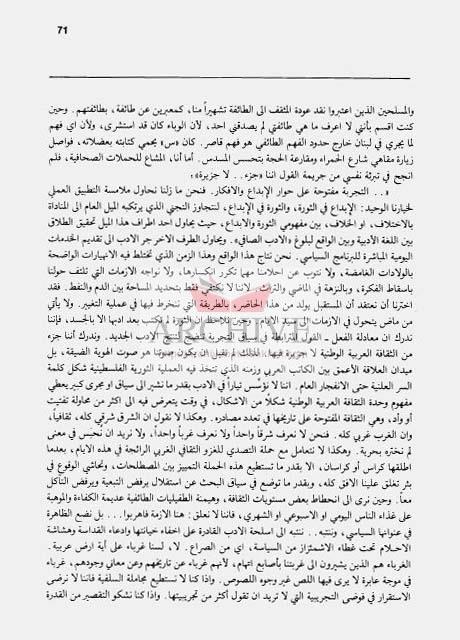 71
والمسلحين الذين اعتبروا نقد عودة المثقف الى الطائفة تشهيراً منا، كمعبرين عن طائفة، بطائفتهم. وحين
كنت اقسم بأنني لا اعرف ما هي طائفتي لم يصدقني احد، لأن الوباء كان قد استشرى، ولأن اي فهم
لما يجري في لبنان خارج حدود الفهم الطائفي هو فهم قاصر. كان «س» يحمي كتابته بعضلاته، فواصل
زيارة مقاهي شارع الحمراء ومقارعة الحجة بتحسس المسدس. أما أنا، المشاع للحملات الصحافية، فلم
انجح في تبرئة نفسي من جريمة القول اننا «جزء.. لا جزيرة»؛
«.. التجربة مفتوحة على حوار الإبداع والافكار. فنحن ما زلنا نحاول ملامسة التطبيق العملي
لخيارنا الوحيد: الإبداع في الثورة، والثورة في الإبداع، لنتجاوز التجني الذي يرتكبه الميل العام الى المناداة
بالاختلاف، او الخلاف، بين مفهومي الثورة والابداع، حيث يحاول احد اطراف هذا الميل تحقيق الطلاق
بين اللغة الأدبية وبين الواقع لبلوغ «الأدب الصافي». ويحاول الطرف الآخر جر الادب الى تقديم الخدمات
اليومية المباشرة للبرنامج السياسي. نحن نتاج هذا الواقع وهذا الزمن الذي تختلط فيه الانهيارات الواضحة
بالولادات الغامضة، ولا نتوب عن احلامنا مهما تكرر انكسارها، ولا نواجه الازمات التي تلتف حولنا
باسقاط الفكرة، وبالنزهة في الماضي والتراث. لاننا لا نكتفي فقط بتحديد المساحة بين الدم والنفط. فقد
اخترنا أن نعتقد أن المستقبل يولد من هذا الحاضر، بالطريقة التي ننخرط فيها في عملية التغيير. ولا يأتي
من ماض يتحول في الازمات الى سيد الايام. وحين نلاحظ ان الثورة لم تكتب بعد ادبها الا بالجسد، فإننا
ندرك ان معادلة الفعل ــ القول المترابطة في سياق التجربة تنضج لتنتج الادب الجديد. وندرك أننا جزء
من الثقافة العربية الوطنية لا جزيرة فيها. لذلك لم نقبل ان يكون صوتنا هو صوت الهوية الضيقة، بل
ميدان العلاقة الأعمق بين الكاتب العربي وزمنه الذي تتخذ فيه العملية الثورية الفلسطينية شكل كلمة
السر العلنية حتى الانفجار العام. اننا لا نؤسس تياراً في الادب بقدر ما نشير الى سياق او مجرى كبير يعطي
مفهوم وحدة الثقافة العربية الوطنية شكلاً من الاشكال، في وقت يتعرض فيه الى اكثر من محاولة تفتيت
او وأد، وهي الثقافة المفتوحة على تاريخها في تعدد مصادره. وهكذا لا نقول ان الشرق شرقي كله، ثقافياً،
وان الغرب غربي كله. فنحن لا نعرف شرقاً واحداً ولا نعرف غرباً واحداً، ولا نريد ان نُحبس في معنى
لم نختره بحرية. وهكذا لا نتعامل مع حملة التصدي للغزو الثقافي الغربي الرائجة في هذه الايام، بعدما
اطلقها كراس أو كراسان، الا بقدر ما تستطيع هذه الحملة التمييز بين المصطلحات، وتحاشي الوقوع في
بئر تغلق علينا الافق كله، وبقدر ما توضع في سياق البحث عن استقلال يرفض التبعية ويرفض التآكل
معاً. وحين نرى الى انحطاط بعض مستويات الثقافة، وهيمنة الطفيليات الثقافية عديمة الكفاءة والموهبة
على غذاء الناس اليومي او الاسبوعي او الشهري، فاننا لا نعلق: هنا الازمة فاهربوا... بل نضع الظاهرة
في عنوانها السياسي، وننتبه.. ننتبه الى اسلحة الادب القادرة على اخفاء خيانتها وادعاء القداسة وهشاشة
الاحلام تحت غطاء الاشمئزاز من السياسة، اي من الصراع. لا، لسنا غرباء على أية ارض عربية.
الغرباء هم الذين يشيرون الى غربتنا بأصابع اتهام، لأنهم غرباء عن تاريخهم وعن معاني وجودهم، غرباء
في موجة عابرة لا يرى فيها اللص غير وجوه اللصوص. واذا كنا لا نستطيع مجاملة السلفية فاننا لا نرضى
الاستقرار في فوضى التجريبية التي لا تريد ان تقول أكثر من تجريبيتها. واذا كنا نشكو التقصير من القدرة
ARCHIVE